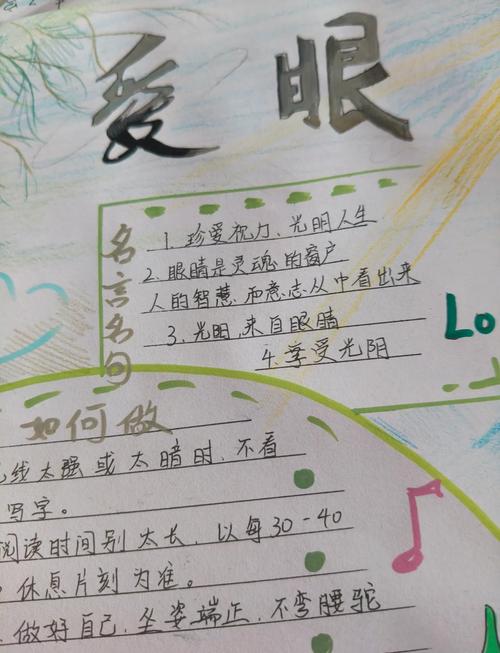 爱眼
名言名句
1. 珍爱视力、光明人生
2. 眼睛是灵魂的窗户
人的智慧而意志从中看出来
3. 光明,来自眼睛
4. 享受光阴
Lo
如何做
线太强或太暗时,不看
写字。
阅读时间别太长,以每30-40
休息片刻为准。
做好自己,坐姿端正,不弯腰驼